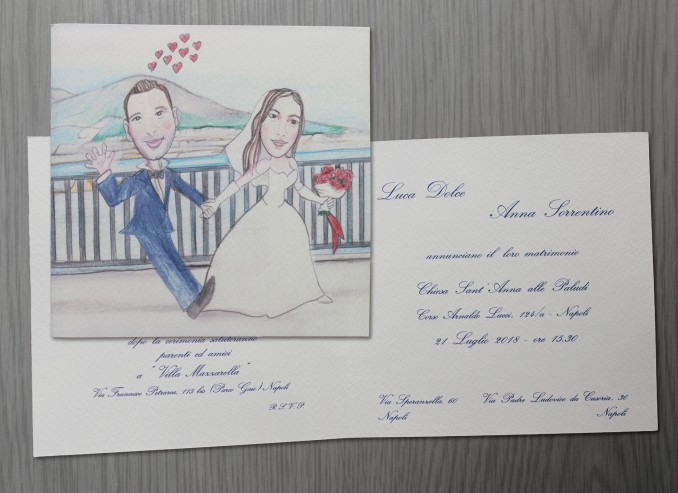 Luca Dolce
Anna Sorrentino
annunciano il loro matrimonio
Chiesa Sant'Anna alle Paludi
Corso Arnaldo Lucci, 124/a - Napoli
21 Luglio 2018 - ore 15,30
Via Speranzella, 60
Napoli
Via Padre Ludovico da Casoria, 30
Napoli
dopo la cerimonia saluteranno
parenti ed amici
a "Villa Mazzarella"
Via Francesco Petrarca, 115 bis (Parco Gaio) Napoli
R.S.V.P.